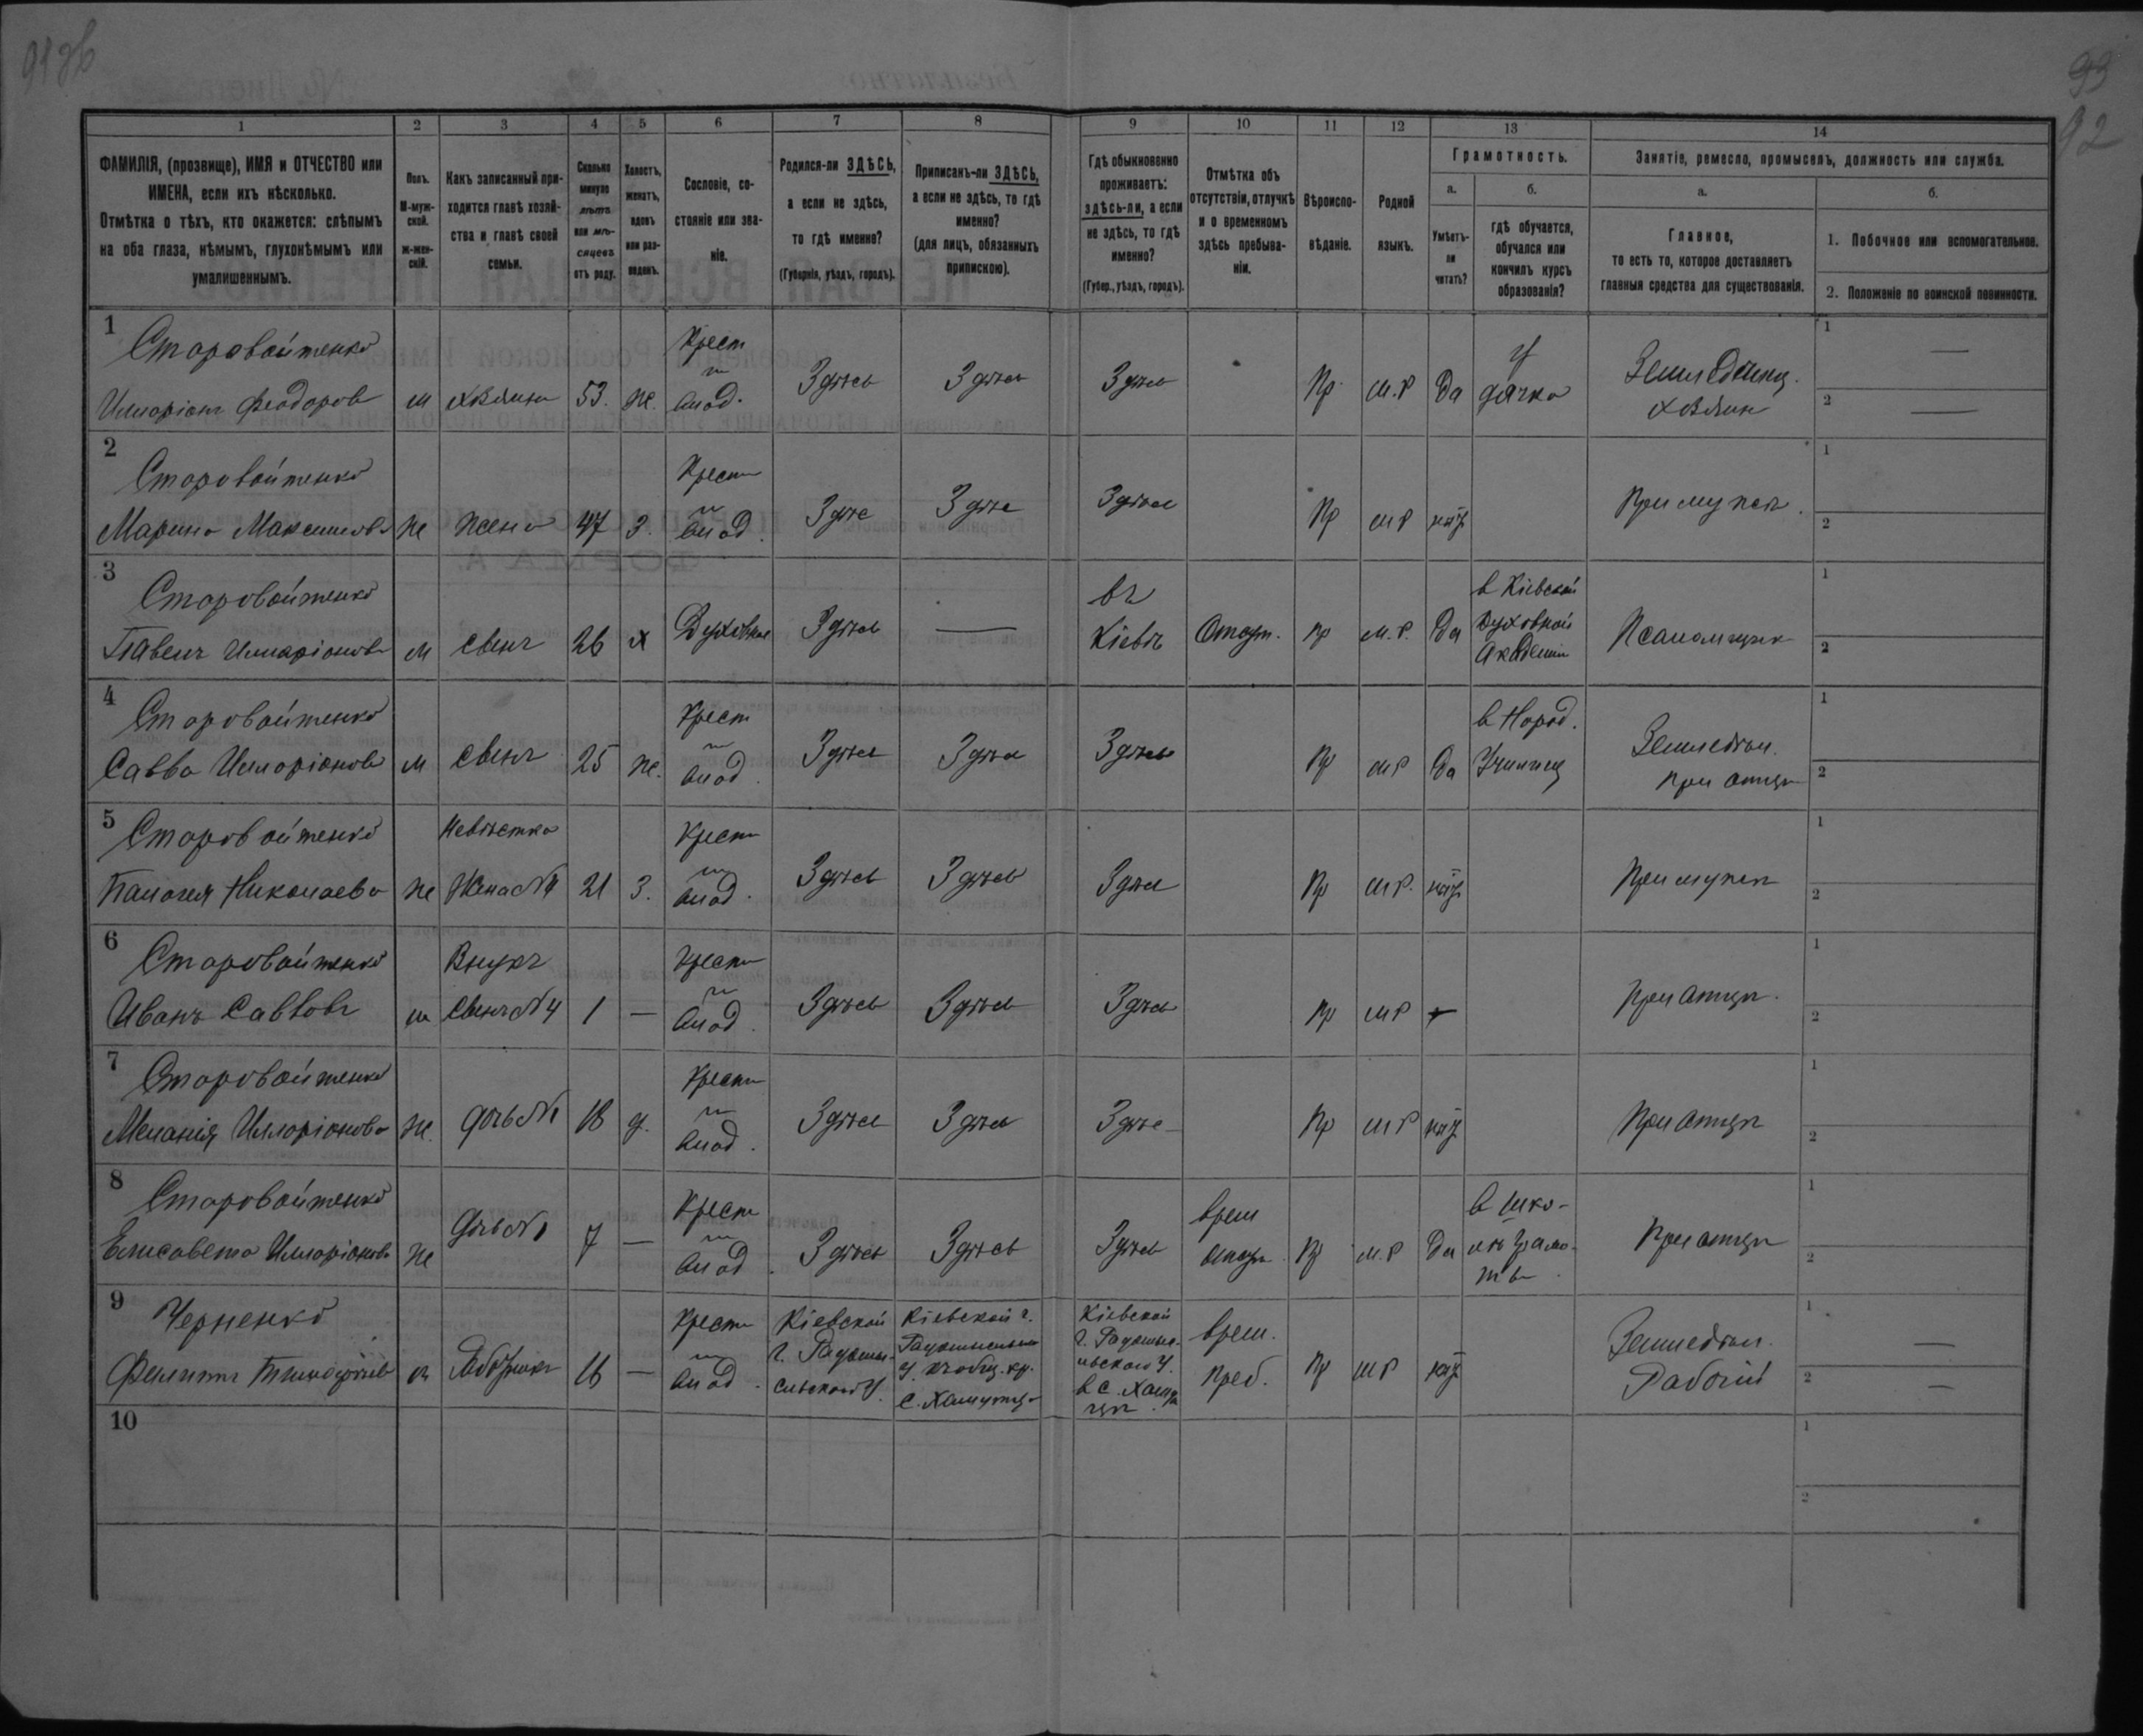 91 об
93
92
1
2
3
4
5
6
7
8
9
10
11
12
13
14
ФАМИЛІЯ, (прозвище), ИМЯ и ОТЧЕСТВО или
ИМЕНА, если ихъ нѣсколько.
Отмѣтка о тѣхъ, кто окажется: слѣпымъ
на оба глаза, нѣмымъ, глухонѣмымъ или
умалишеннымъ.
Полъ.
М-муж-
ской.
ж-жен-
скій.
Какъ записанный при-
ходится главѣ хозяй-
ства и главѣ своей
семьи.
Сколько
минуло
лѣтъ
или мѣ-
сяцевъ
отъ роду.
Холостъ,
женатъ,
вдовъ
или раз-
веденъ.
Сословіе, со-
стояніе или зва-
ніе.
Родился-ли ЗДѢСЬ,
а если не здѣсь,
то гдѣ именно?
(Губернія, уѣздъ, городъ).
Приписанъ-ли ЗДѢСЬ,
а если не здѣсь, то гдѣ
именно?
(для лицъ, обязанныхъ
припискою).
Гдѣ обыкновенно
проживаетъ:
здѣсь-ли, а если
не здѣсь, то гдѣ
именно?
(Губер., уѣздъ, городъ).
Отмѣтка объ
отсутствіи, отлучкѣ
и о временномъ
здѣсь пребыва-
ніи.
Вѣроиспо-
вѣданіе.
Родной
языкъ.
Грамотность.
а.
Умѣетъ-
ли
читать?
б.
гдѣ обучается,
обучался или
кончилъ курсъ
образованія?
Занятіе, ремесло, промыселъ, должность или служба.
а.
Главное,
то есть то, которое доставляетъ
главныя средства для существованія.
б.
1. Побочное или вспомогательное.
2. Положеніе по воинской повинности.
1
Старовойтенко
Илларіонъ Феодоров м хозяинъ 53. же. Крест из влад. Здѣсь Здѣсь Здѣсь Пр. м.р Да У дячка Земледѣлец. хозяин
1 —
2 —
2
Старовойтенко
Марина Максимова же жена 47 з. Крест из влад. Здѣсь Здѣсь Здѣсь Пр м р нѣт При мужѣ.
1
2
3
Старовойтенко
Павелъ Илларіонов м сынъ 26 х Духовное Здѣсь — въ Кіевѣ Отсут. пр м.р. Да в Кіевской Духовной Академіи Псаломщик
1
2
4
Старовойтенко
Савва Илларіонов м сынъ 25 же. Крест из влад. Здѣсь Здѣсь Здѣсь Пр м р Да в Народ. Училищ Земледѣл. при отцѣ
1
2
5
Старовойтенко
Палагея Николаева же Невѣстка Жена №4 21 з. Крест из влад. Здѣсь Здѣсь Здѣсь Пр м р. нѣт При мужѣ
1
2
6
Старовойтенко
Иванъ Саввовъ м Внукъ Сынъ №4 1 — Крест из влад. Здѣсь Здѣсь Здѣсь Пр м р При отцѣ.
1
2
7
Старовойтенко
Меланія Илларіонова же. дочь №1 18 д. Крест из влад. Здѣсь Здѣсь Здѣсь Пр м р нѣт При отцѣ
1
2
8
Старовойтенко
Елисавета Илларіонова же дочь №1 7 — Крест из влад. Здѣсь Здѣсь Здѣсь врем отсут. Пр м.р Да в шко- лѣ грамо- ты При отцѣ
1
2
9
Черненко
Филиппъ Тимофѣев м Работник 16 — Крест из влад. Кіевской г. Радомы- сльского у. Кіевской г. Радомысльска у. Кіевской г. Радомысл- ьского у. в с. врем. преб. Пр м р нѣт Земледѣл. Рабочій
1 —
2 —
10
1
2